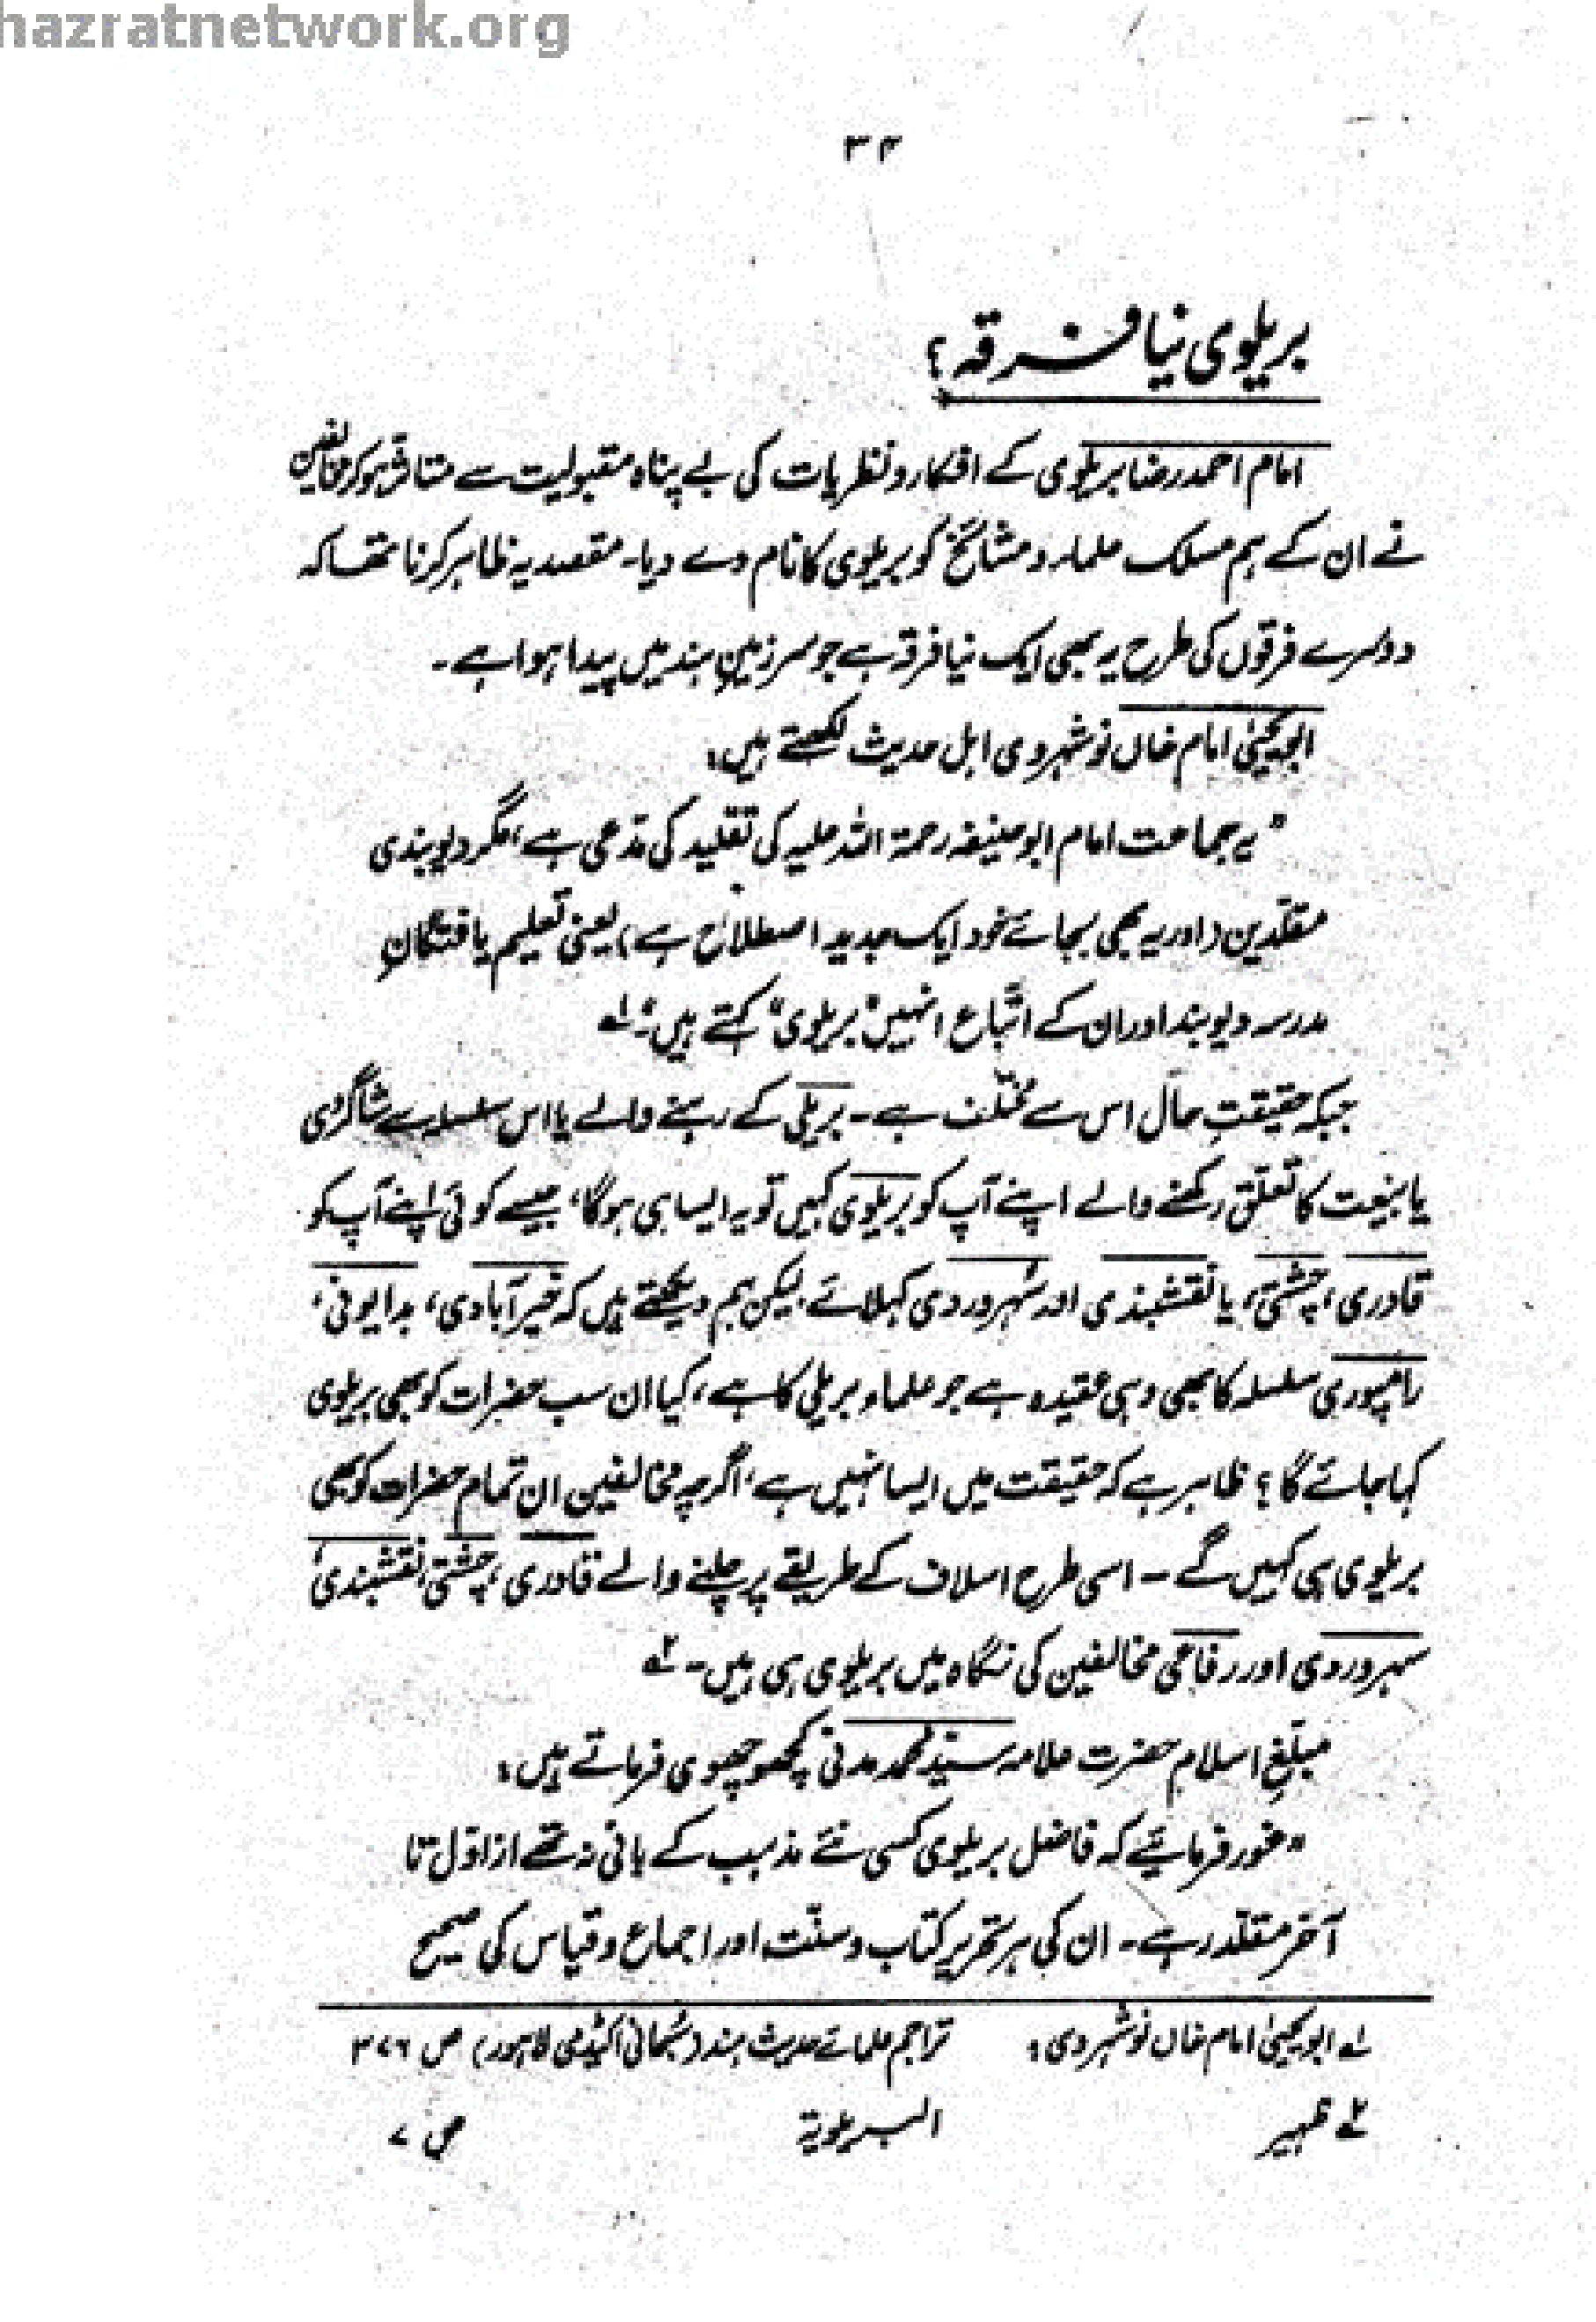 hazratnetwork.org
۳۴
بریلوی نیا فرقہ؟
امام احمد رضا بریلوی کے افکار و نظریات کی بے پناہ مقبولیت سے متاثر ہو کر مخالفین
نے ان کے ہم مسلک علماء و مشائخ کو بریلوی کا نام دے دیا۔ مقصد یہ ظاہر کرنا تھا کہ
دوسرے فرقوں کی طرح یہ بھی ایک نیا فرقہ ہے جو سرزمینِ ہند میں پیدا ہوا ہے۔
ابویحییٰ امام خاں نوشہروی اہل حدیث لکھتے ہیں:
"یہ جماعت امام ابوحنیفہ رحمۃ اللہ علیہ کی تقلید کی مدّعی ہے، مگر دیوبندی
مقلّدین (اور یہ بھی بجائے خود ایک جدید اصطلاح ہے) یعنی تعلیم یافتگانِ
مدرسہ دیوبند اور ان کے اتّباع انہیں "بریلوی" کہتے ہیں۔" ۱؎
جبکہ حقیقتِ حال اس سے مختلف ہے۔ بریلی کے رہنے والے یا اس سلسلہ سے شاگردی
یا بیعت کا تعلق رکھنے والے اپنے آپ کو بریلوی کہیں تو یہ ایسا ہی ہوگا، جیسے کوئی اپنے آپ کو
قادری، چشتی، یا نقشبندی اور سہروردی کہلائے، لیکن ہم دیکھتے ہیں کہ خیرآبادی، بدایونی،
رامپوری سلسلہ کا بھی وہی عقیدہ ہے جو علماء بریلی کا ہے، کیا ان سب حضرات کو بھی بریلوی
کہا جائے گا؟ ظاہر ہے کہ حقیقت میں ایسا نہیں ہے، اگرچہ مخالفین ان تمام حضرات کو بھی
بریلوی ہی کہیں گے۔ اسی طرح اسلاف کے طریقے پر چلنے والے قادری، چشتی، نقشبندی،
سہروردی اور رفاعی مخالفین کی نگاہ میں بریلوی ہی ہیں۔ ۲؎
مبلّغِ اسلام حضرت علامہ سیّد محمد مدنی کچھوچھوی فرماتے ہیں:
"غور فرمائیے کہ فاضل بریلوی کسی نئے مذہب کے بانی نہ تھے از اوّل تا
آخر مقلّد رہے۔ ان کی ہر تحریر کتاب و سنّت اور اجماع و قیاس کی صحیح
۱؎ ابویحییٰ امام خاں نوشہروی: تراجم علمائے حدیث ہند (سبحانی اکیڈمی لاہور) ص ۳۷۶
۲؎ ظہیر البریلویۃ ص ۷